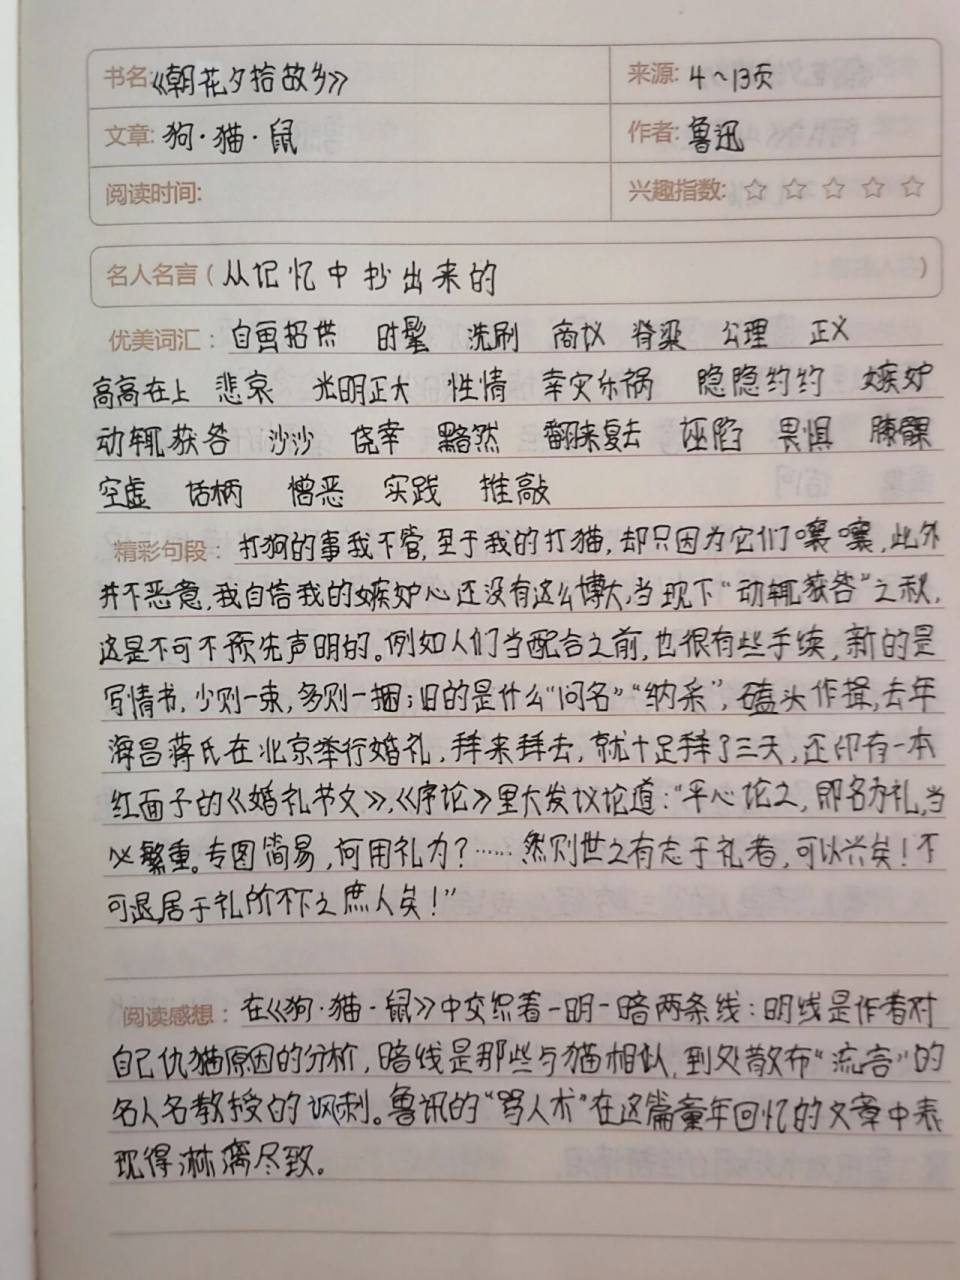 书名:《朝花夕拾故乡》 来源: 4~13页
文章: 狗·猫·鼠 作者: 鲁迅
阅读时间: 兴趣指数: ☆ ☆ ☆ ☆ ☆
名人名言 ( 从记忆中抄出来的 )
优美词汇: 自画招供 时髦 洗刷 商议 脊梁 公理 正义
高高在上 悲哀 光明正大 性情 幸灾乐祸 隐隐约约 嫉妒
动辄获咎 沙沙 侥幸 黯然 翻来复去 诬陷 畏惧
空虚 话柄 憎恶 实践 推敲
精彩句段: 打狗的事我不管,至于我的打猫,却只因为它们嚷嚷,此外
并不恶意,我自信我的嫉妒心还没有这么博大,当现下“动辄获咎”之秋,
这是不可不预先声明的。例如人们当配合之前,也很有些手续,新的是
写情书,少则一束,多则一捆;旧的是什么“问名”“纳采”,磕头作揖,去年
海昌蒋氏在北京举行婚礼,拜来拜去,就十足拜了三天,还印有一本
红面子的《婚礼节文》,《序论》里大发议论道:“平心论之,即名为礼,当
必繁重。专图简易,何用礼为?……然则世之有志于礼者,可以兴矣!不
可退居于礼所不下之庶人矣!”
阅读感想: 在《狗·猫·鼠》中交织着一明一暗两条线:明线是作者对
自己仇猫原因的分析,暗线是那些与猫相似,到处散布“流言”的
名人名教授的讽刺。鲁讯的“骂人术”在这篇童年回忆的文章中表
现得淋漓尽致。